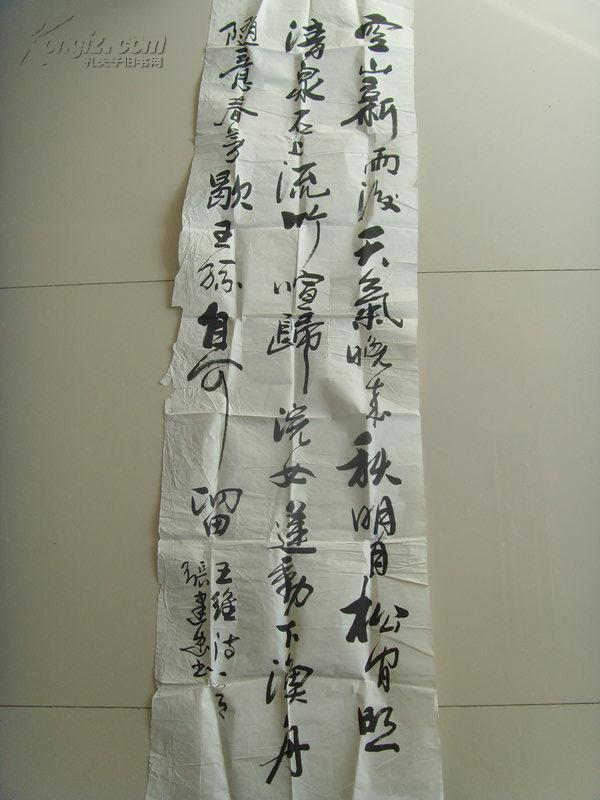 空山新雨後天氣晚來秋明月松間照
清泉石上流竹喧歸浣女蓮動下漁舟
隨意春芳歇王孫自可留
王維詩一首
張建書
Kongfz.com
孔夫子旧书网